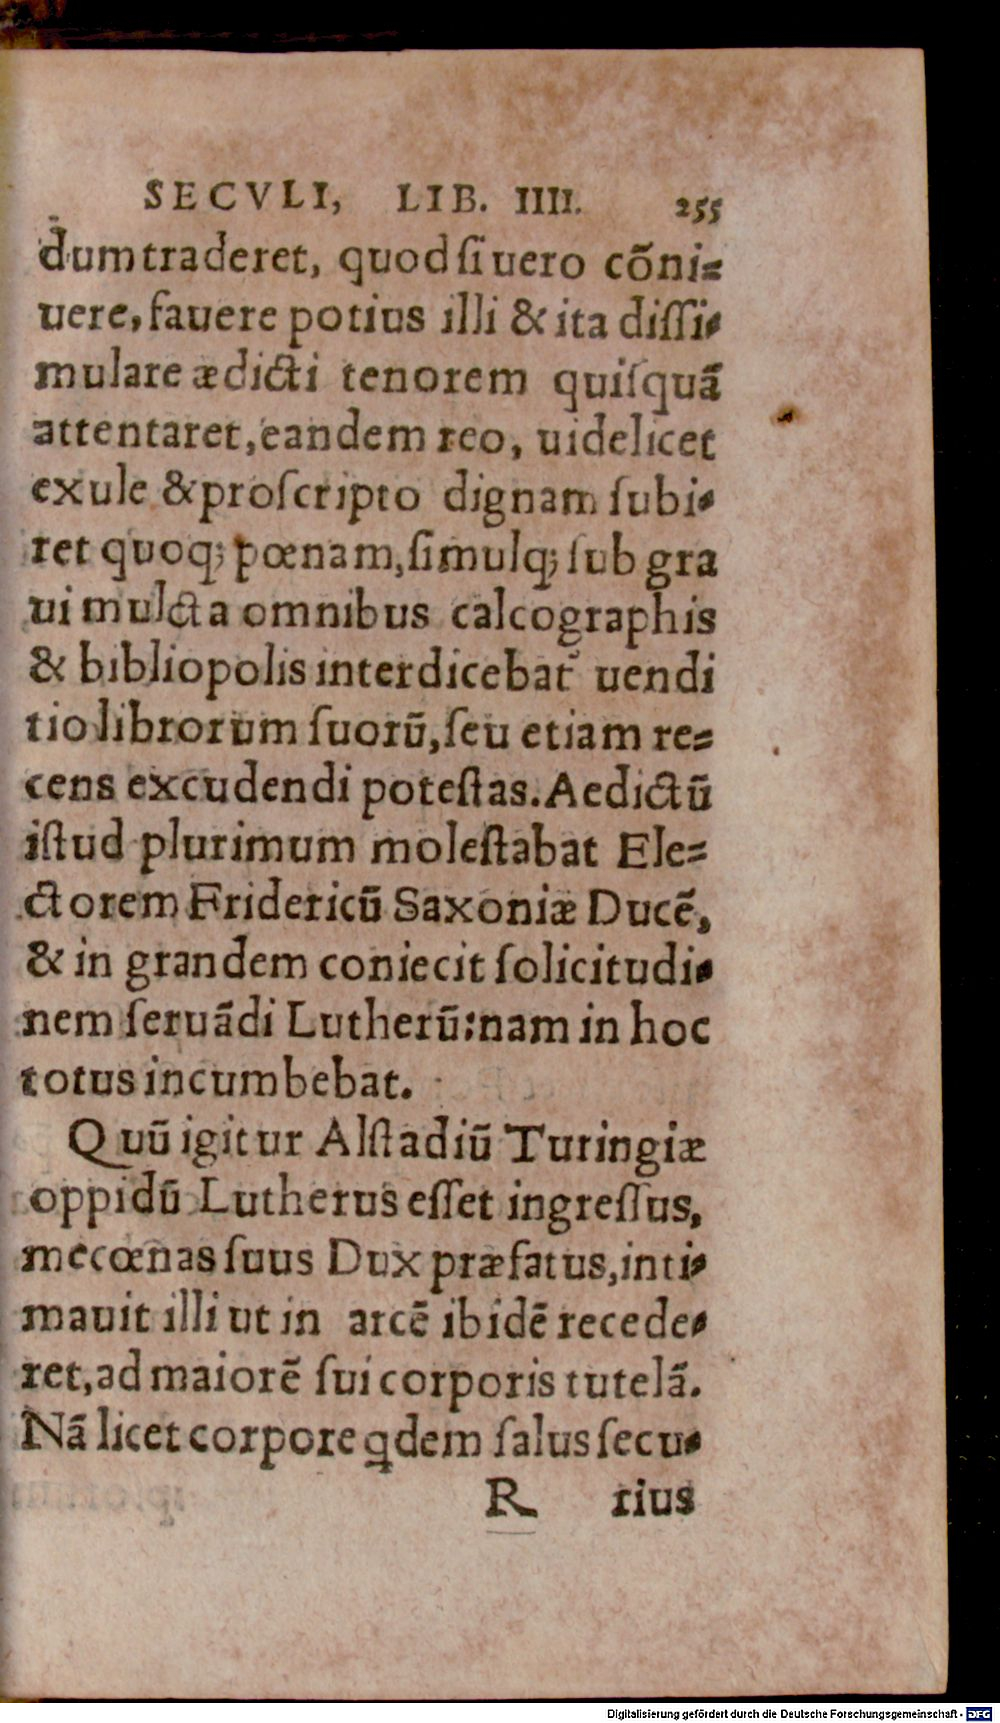 SECVLI, LIB. IIII. 255
dum traderet, quod ſi uero cõni⸗
uere, fauere potius illi & ita diſſi⸗
mulare ædicti tenorem quiſquã
attentaret, eandem reo, uidelicet
exule & proſcripto dignam ſubi⸗
ret quoq; pœnam, ſimulq; ſub gra
ui mulcta omnibus calcographis
& bibliopolis interdicebat᷑ uendi
tio librorum ſuorũ, ſeu etiam re⸗
cens excudendi poteſtas. Aedictũ
iſtud plurimum moleſtabat Ele⸗
ctorem Fridericũ Saxoniæ Ducẽ,
& in grandem coniecit ſolicitudi⸗
nem ſeruãdi Lutherũ: nam in hoc
totus incumbebat.
Quũ igitur Alſtadiũ Turingiæ
oppidũ Lutherus eſſet ingreſſus,
mecœnas ſuus Dux præfatus, inti⸗
mauit illi ut in arcẽ ibidẽ recede⸗
ret, ad maiorẽ ſui corporis tutelã.
Nã licet corpore q̃dem ſalus ſecu⸗
R rius
Digitalisierung gefördert durch die Deutsche Forschungsgemeinschaft - DFG